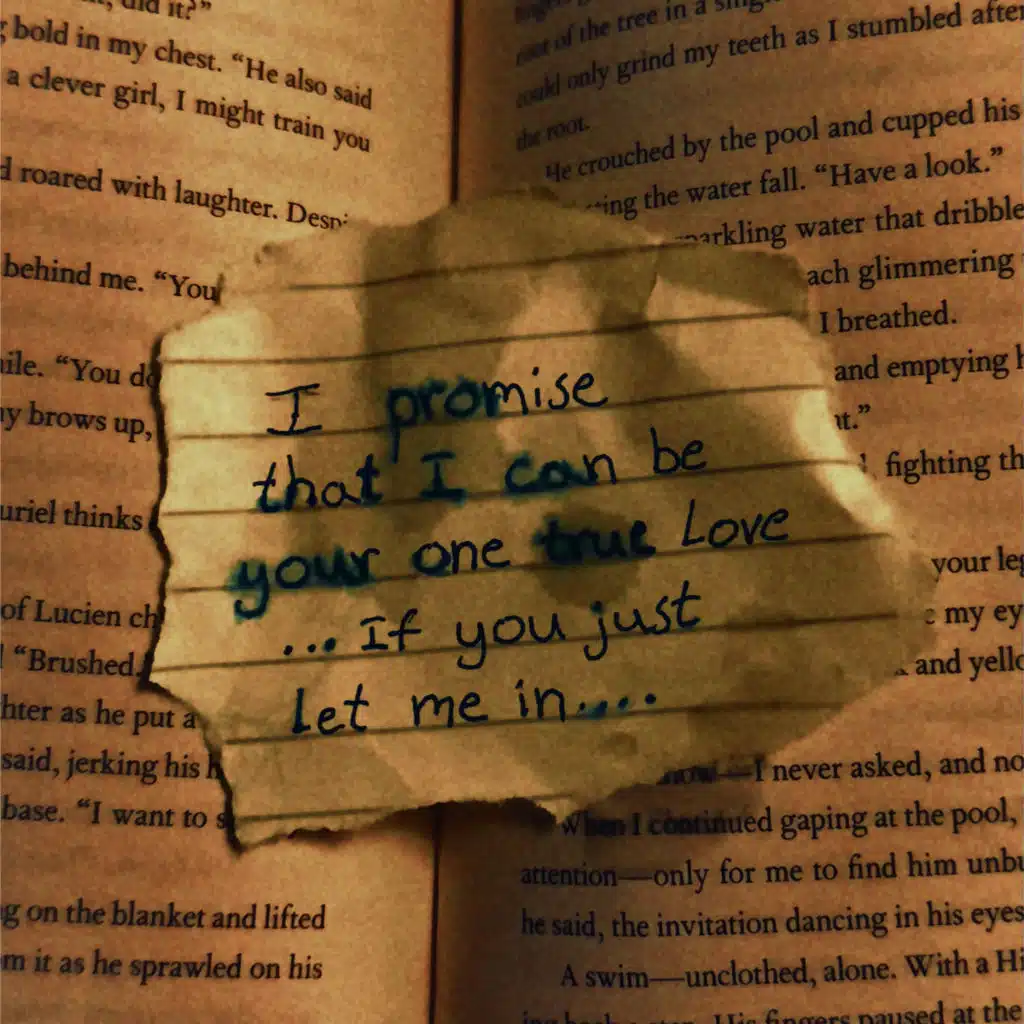 did it?"
bold in my chest. "He also said
a clever girl, I might train you
roared with laughter.
behind me. "You
"You
y brows up,
uriel thinks
of Lucien
"Brushed
hter as he put a
said, jerking his
base. "I want to
on the blanket and lifted
m it as he sprawled on his
of the tree in a
could only grind my teeth as I stumbled after
the root.
He crouched by the pool and cupped his
ing the water fall. "Have a look."
arkling water that dribble
ach glimmering
I breathed.
and emptying
t."
fighting
your
my
and
I promise
that I can be
your one true Love
... If you just
Let me in....
—I never asked, and no
When I continued gaping at the pool,
attention—only for me to find him
he said, the invitation dancing in his eyes
A swim—unclothed, alone. With a
His fingers paused at the